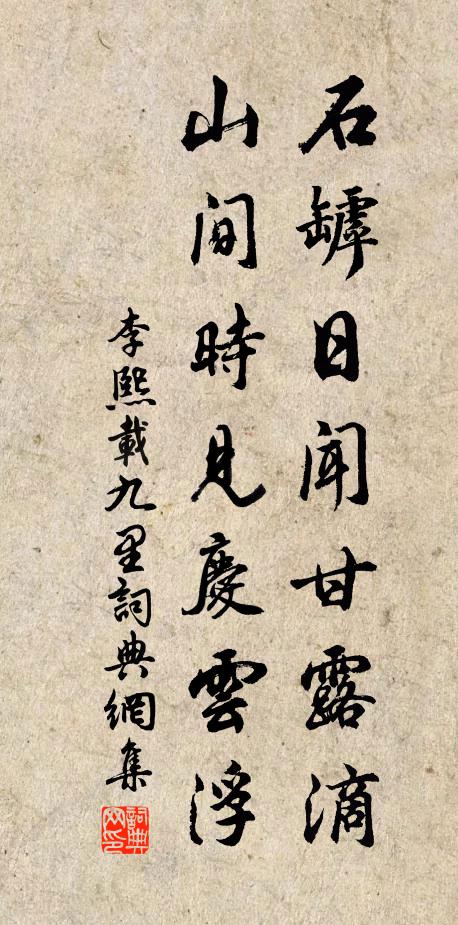 石罅日聞甘露滴
山間時見慶雲浮
李熙載九里詞典網集
詞典網印